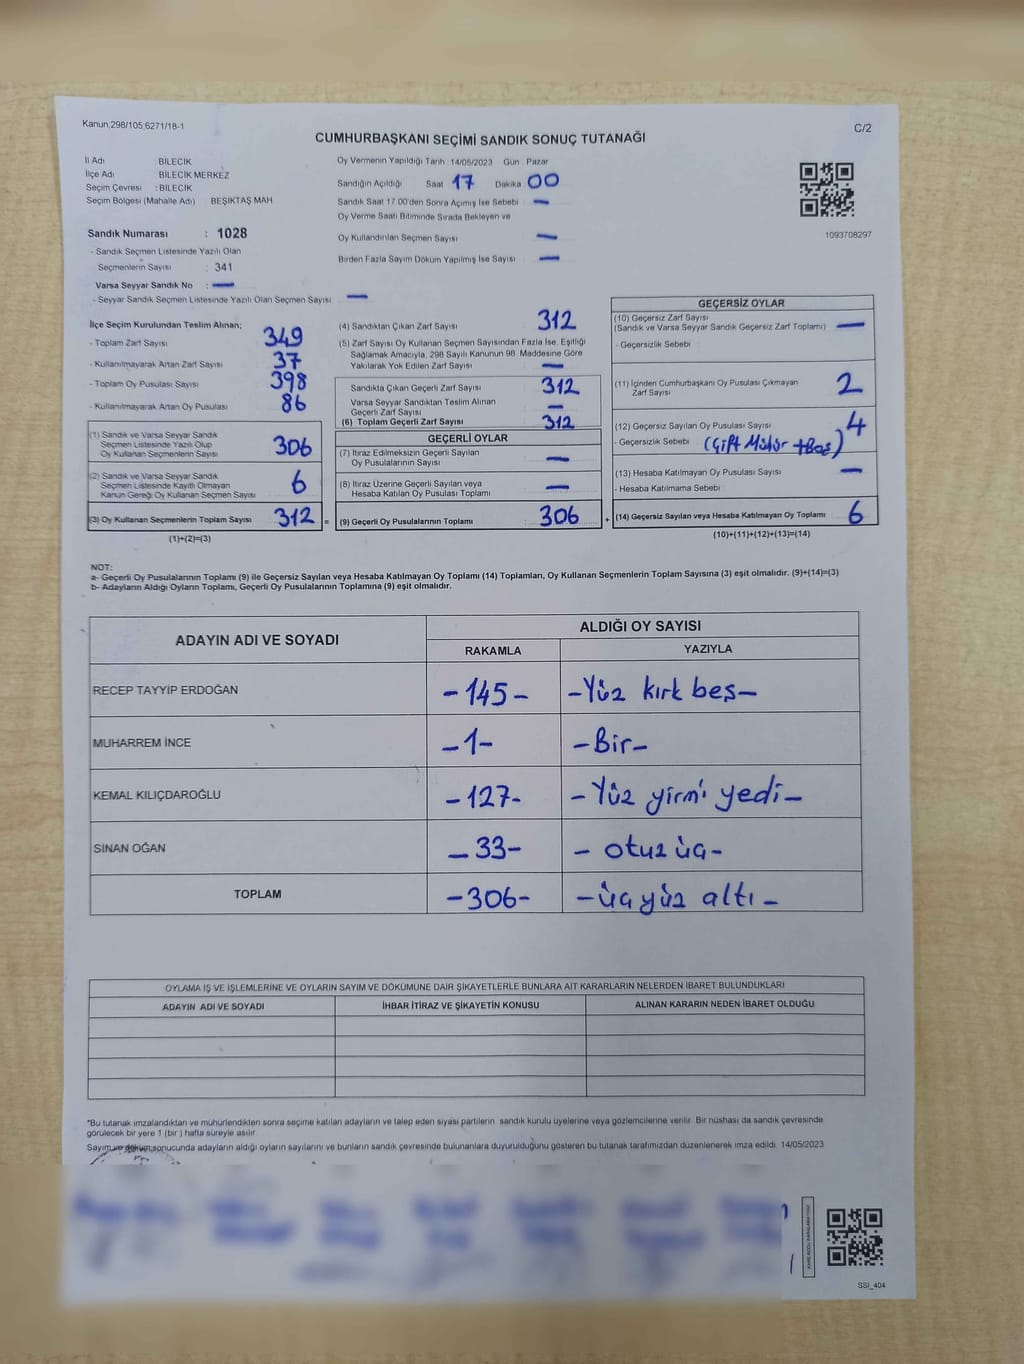 Kanun,298/105,6271/18-1
C/2
CUMHURBAŞKANI SEÇİMİ SANDIK SONUÇ TUTANAĞI
İl Adı BİLECİK
İlçe Adı BİLECİK MERKEZ
Seçim Çevresi : BİLECİK
Seçim Bölgesi (Mahalle Adı) BEŞİKTAŞ MAH
Sandık Numarası : 1028
- Sandık Seçmen Listesinde Yazılı Olan
Seçmenlerin Sayısı : 341
Varsa Seyyar Sandık No : —
- Seyyar Sandık Seçmen Listesinde Yazılı Olan Seçmen Sayısı —
Oy Vermenin Yapıldığı Tarih 14/05/2023 Gün Pazar
Sandığın Açıldığı Saat 17 Dakika 00
Sandık Saat 17:00'den Sonra Açımış İse Sebebi —
Oy Verme Saati Bitiminde Sırada Bekleyen ve
Oy Kullandırılan Seçmen Sayısı —
Birden Fazla Sayım Döküm Yapılmış İse Sayısı —
1093708297
İlçe Seçim Kurulundan Teslim Alınan;
- Toplam Zarf Sayısı 349
- Kullanılmayarak Artan Zarf Sayısı 37
- Toplam Oy Pusulası Sayısı 398
- Kullanılmayarak Artan Oy Pusulası 86
(1) Sandık ve Varsa Seyyar Sandık
Seçmen Listesinde Yazılı Olup
Oy Kullanan Seçmenlerin Sayısı 306
(2) Sandık ve Varsa Seyyar Sandık
Seçmen Listesinde Kayıtlı Olmayan
Kanun Gereği Oy Kullanan Seçmen Sayısı 6
(3) Oy Kullanan Seçmenlerin Toplam Sayısı 312 =
(1)+(2)=(3)
(4) Sandıktan Çıkan Zarf Sayısı 312
(5) Zarf Sayısı Oy Kullanan Seçmen Sayısından Fazla İse, Eşitliği
Sağlamak Amacıyla, 298 Sayılı Kanunun 98. Maddesine Göre
Yakılarak Yok Edilen Zarf Sayısı —
Sandıkta Çıkan Geçerli Zarf Sayısı 312
Varsa Seyyar Sandıktan Teslim Alınan
Geçerli Zarf Sayısı —
(6) Toplam Geçerli Zarf Sayısı 312
GEÇERLİ OYLAR
(7) İtiraz Edilmeksizin Geçerli Sayılan
Oy Pusulalarının Sayısı —
(8) İtiraz Üzerine Geçerli Sayılan veya
Hesaba Katılan Oy Pusulası Toplamı —
(9) Geçerli Oy Pusulalarının Toplamı 306 +
GEÇERSİZ OYLAR
(10) Geçersiz Zarf Sayısı
(Sandık ve Varsa Seyyar Sandık Geçersiz Zarf Toplamı) —
- Geçersizlik Sebebi
(11) İçinden Cumhurbaşkanı Oy Pusulası Çıkmayan
Zarf Sayısı 2
(12) Geçersiz Sayılan Oy Pusulası Sayısı 4
- Geçersizlik Sebebi (Çift Mühür + Boş)
(13) Hesaba Katılmayan Oy Pusulası Sayısı —
- Hesaba Katılmama Sebebi
(14) Geçersiz Sayılan veya Hesaba Katılmayan Oy Toplamı 6
(10)+(11)+(12)+(13)=(14)
NOT:
a- Geçerli Oy Pusulalarının Toplamı (9) ile Geçersiz Sayılan veya Hesaba Katılmayan Oy Toplamı (14) Toplamları, Oy Kullanan Seçmenlerin Toplam Sayısına (3) eşit olmalıdır. (9)+(14)=(3)
b- Adayların Aldığı Oyların Toplamı, Geçerli Oy Pusulalarının Toplamına (9) eşit olmalıdır.
ADAYIN ADI VE SOYADI ALDIĞI OY SAYISI
RAKAMLA YAZIYLA
RECEP TAYYİP ERDOĞAN -145- -Yüz kırk beş-
MUHARREM İNCE -1- -Bir-
KEMAL KILIÇDAROĞLU -127- -Yüz yirmi yedi-
SİNAN OĞAN -33- -otuz üç-
TOPLAM -306- -üç yüz altı-
OYLAMA İŞ VE İŞLEMLERİNE VE OYLARIN SAYIM VE DÖKÜMÜNE DAİR ŞİKAYETLERLE BUNLARA AİT KARARLARIN NELERDEN İBARET BULUNDUKLARI
ADAYIN ADI VE SOYADI İHBAR İTİRAZ VE ŞİKAYETİN KONUSU ALINAN KARARIN NEDEN İBARET OLDUĞU
*Bu tutanak imzalandıktan ve mühürlendikten sonra seçime katılan adayların ve talep eden siyasi partilerin sandık kurulu üyelerine veya gözlemcilerine verilir. Bir nüshası da sandık çevresinde
görülecek bir yere 1 (bir) hafta süreyle asılır.
Sayım ve döküm sonucunda adayların aldığı oyların sayılarını ve bunların sandık çevresinde bulunanlara duyurulduğunu gösteren bu tutanak tarafımızdan düzenlenerek imza edildi. 14/05/2023
SSI_404